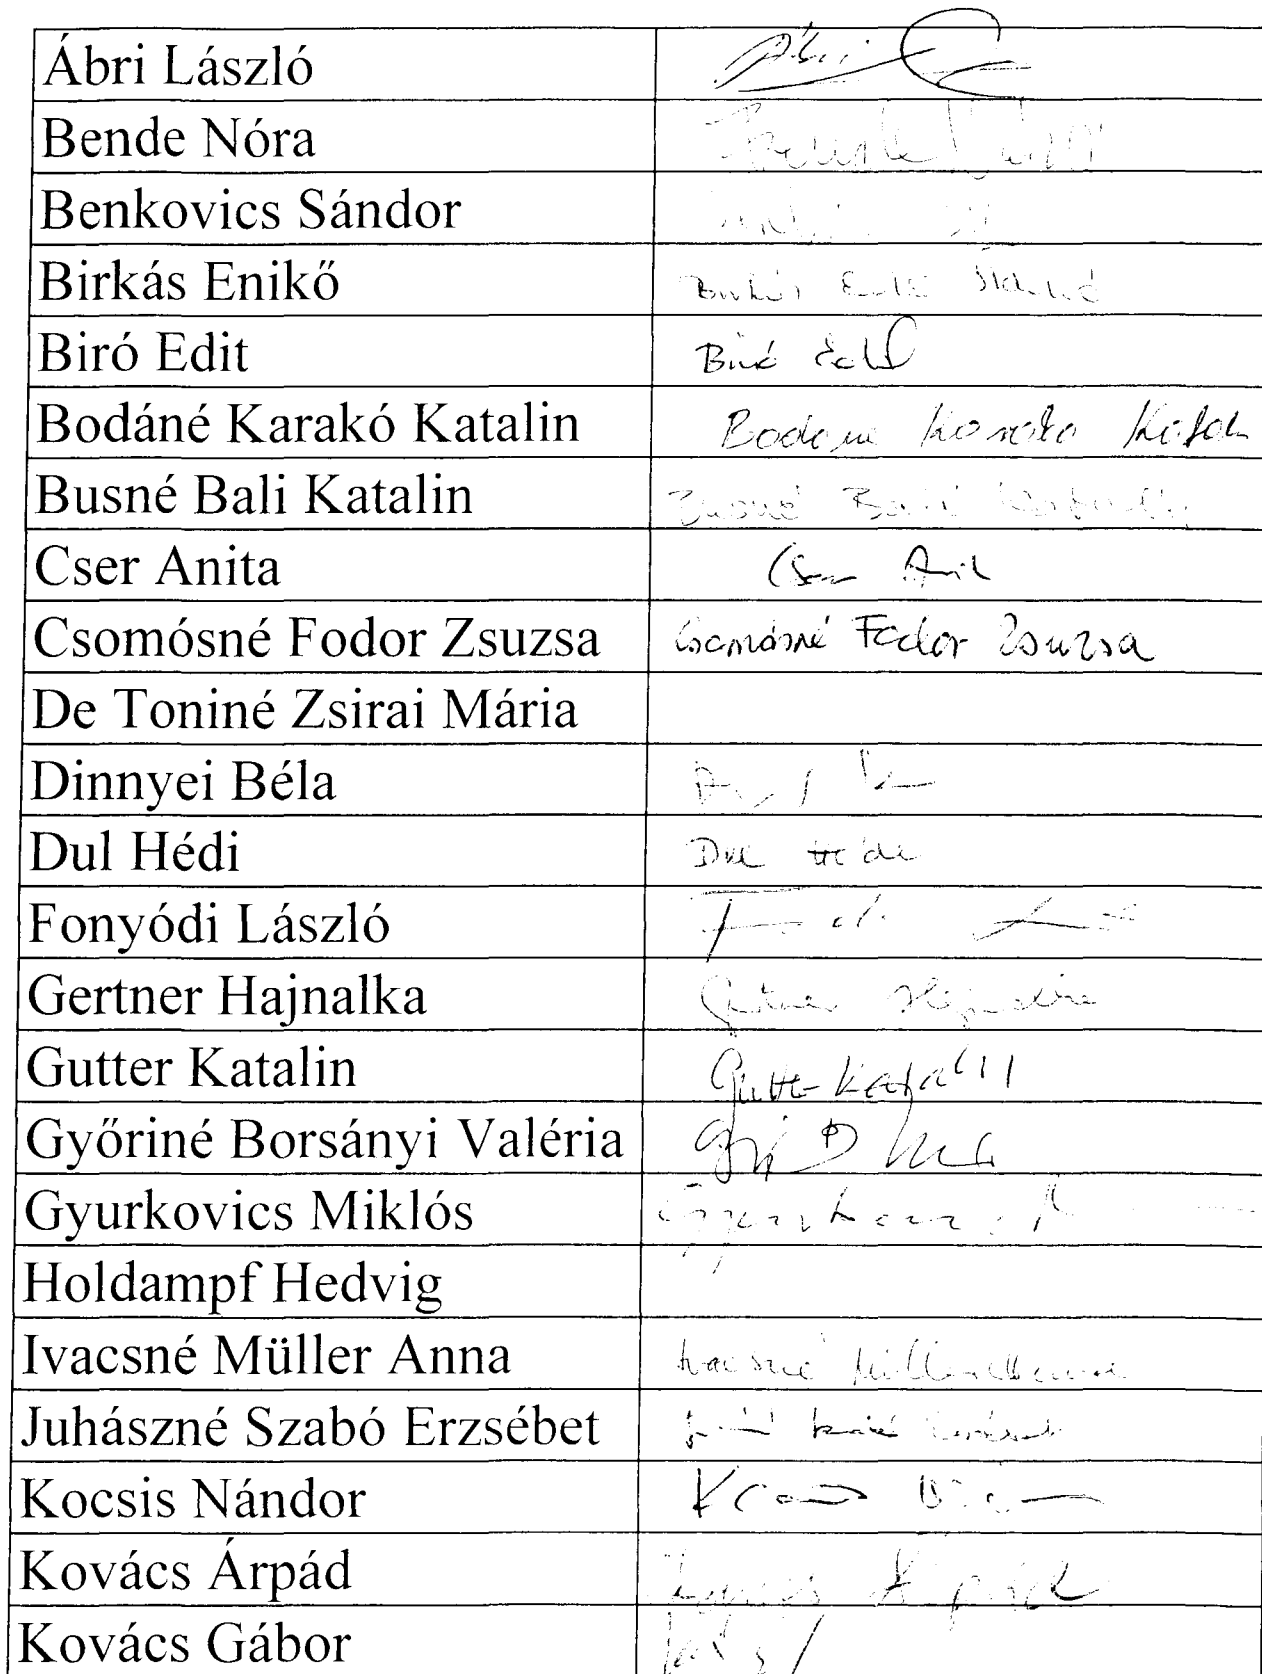 Ábri László Ábri
Bende Nóra Bende Nóra
Benkovics Sándor
Birkás Enikő Birkás
Biró Edit Biró Edit
Bodáné Karakó Katalin Bodáné Karakó Katalin
Busné Bali Katalin Busné Bali Katalin
Cser Anita Cser Anita
Csomósné Fodor Zsuzsa Csomósné Fodor Zsuzsa
De Toniné Zsirai Mária
Dinnyei Béla
Dul Hédi Dul Hédi
Fonyódi László
Gertner Hajnalka Gertner Hajnalka
Gutter Katalin Gutter Katalin
Győriné Borsányi Valéria
Gyurkovics Miklós
Holdampf Hedvig
Ivacsné Müller Anna Ivacsné Müller Anna
Juhászné Szabó Erzsébet
Kocsis Nándor
Kovács Árpád Kovács Árpád
Kovács Gábor